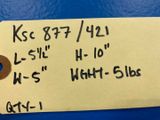 Ksc 877/421
L-5½" H-10"
W-5" WGHT-5lbs
QTY-1